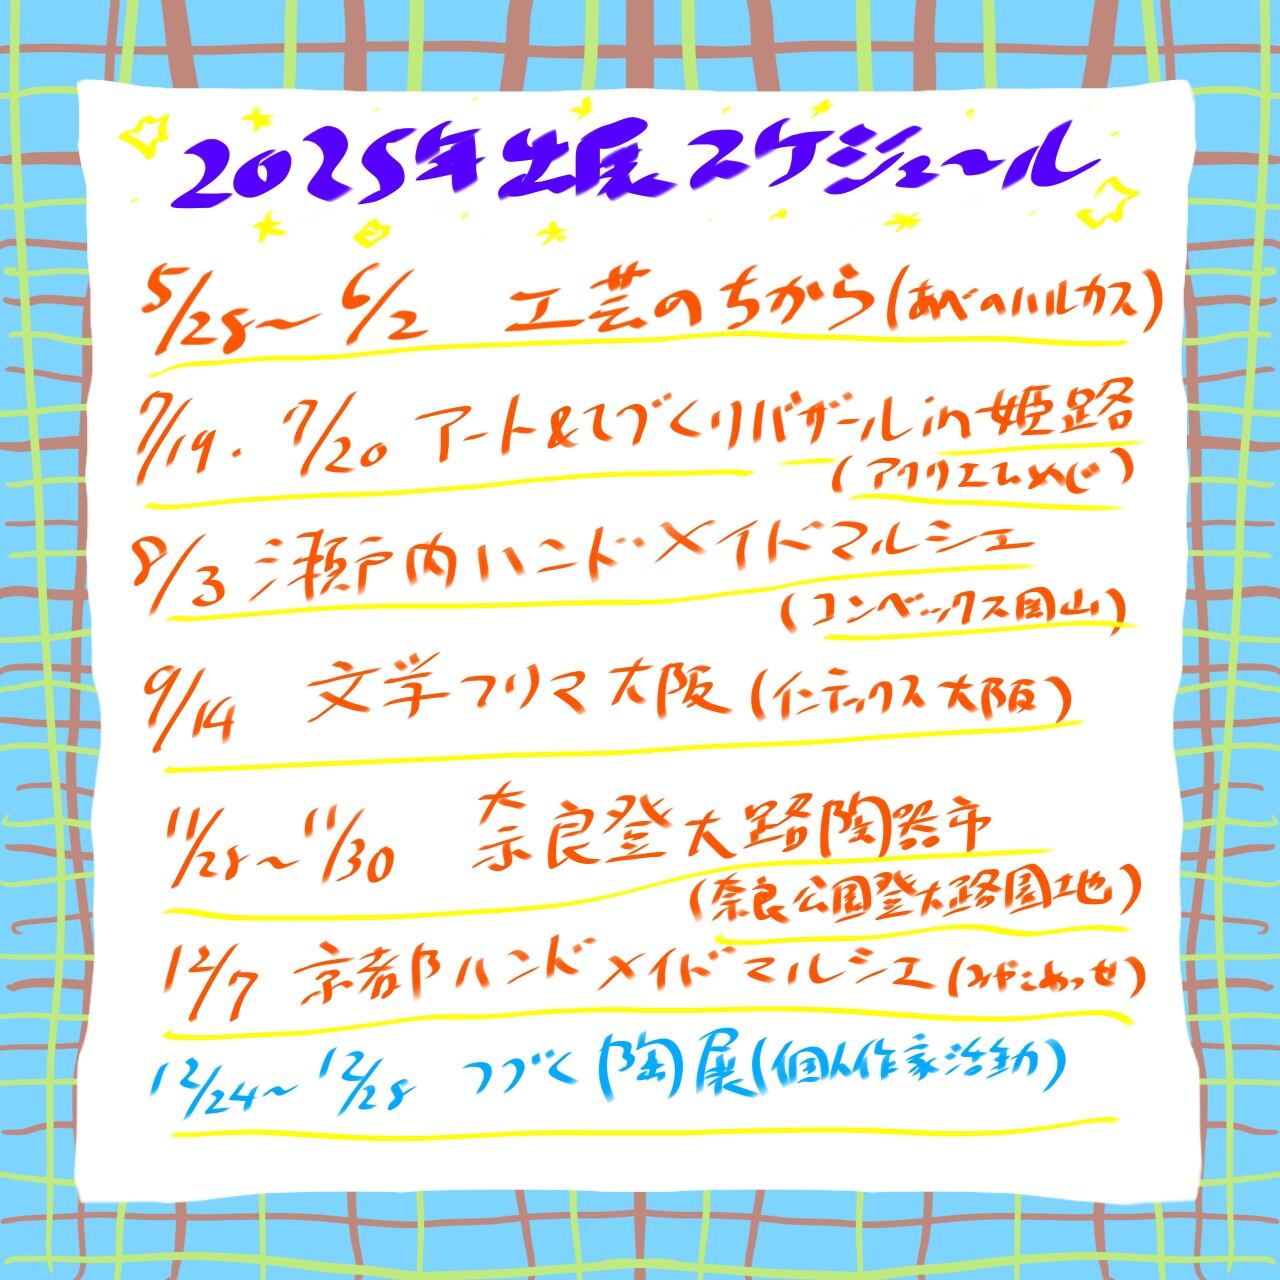 2025年出展スケジュール
5/28～6/2 工芸のちから(あべのハルカス)
7/19・7/20 アート&てづくりバザール in 姫路
(アクリエひめじ)
8/3 瀬戸内ハンドメイドマルシェ
(コンベックス岡山)
9/14 文学フリマ大阪(インテックス大阪)
11/28～11/30 奈良登大路陶器市
(奈良公園登大路園地)
12/7 京都ハンドメイドマルシェ(みやこめっせ)
12/24～12/28 つづく陶展(個人作家活動)